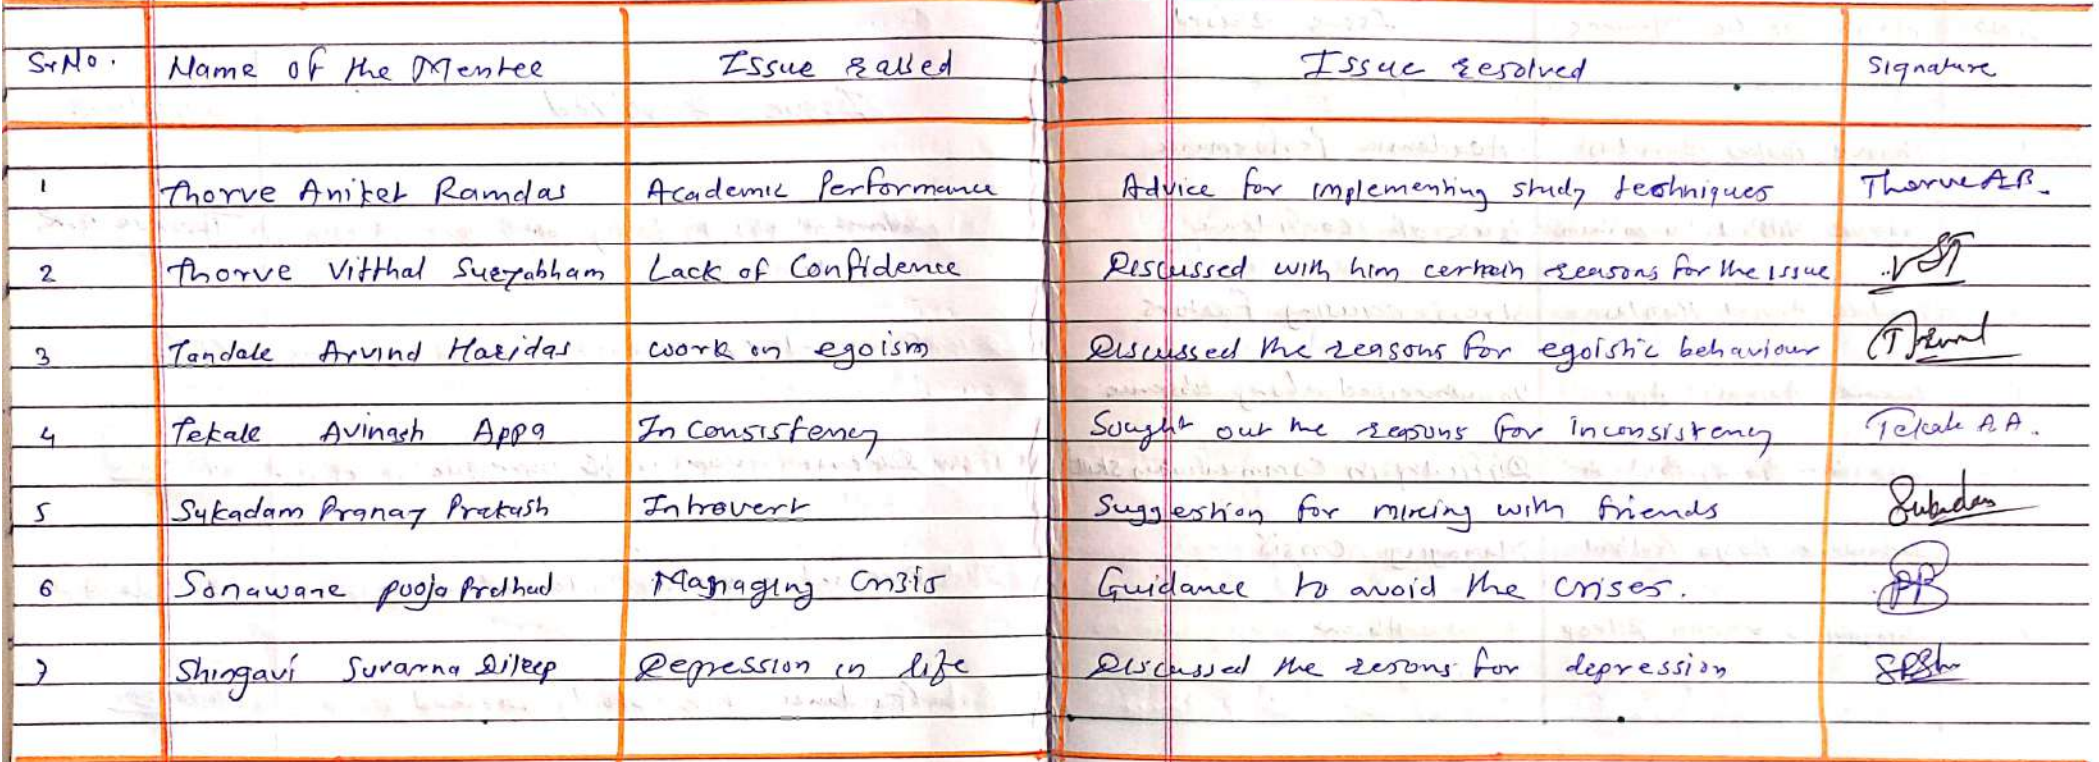 Sr No. Name of the Mentee Issue raised Issue resolved Signature
1 Thorve Aniket Ramdas Academic Performance Advice for implementing study techniques Thorve A.R.
2 Thorve Vitthal Lack of Confidence Discussed with him certain reasons for the issue
3 Tandale Arvind Haridas work on egoism Discussed the reasons for egoistic behaviour
4 Tekale Avinash Appa Inconsistency Sought out the reasons for inconsistency Tekale A.A.
5 Sukadam Pranay Prakash Introvert Suggestion for mixing with friends Sukadam
6 Sonawane pooja Managing Crisis Guidance to avoid the crises.
7 Shingavi Suvarna Dileep Depression in life Discussed the resons for depression